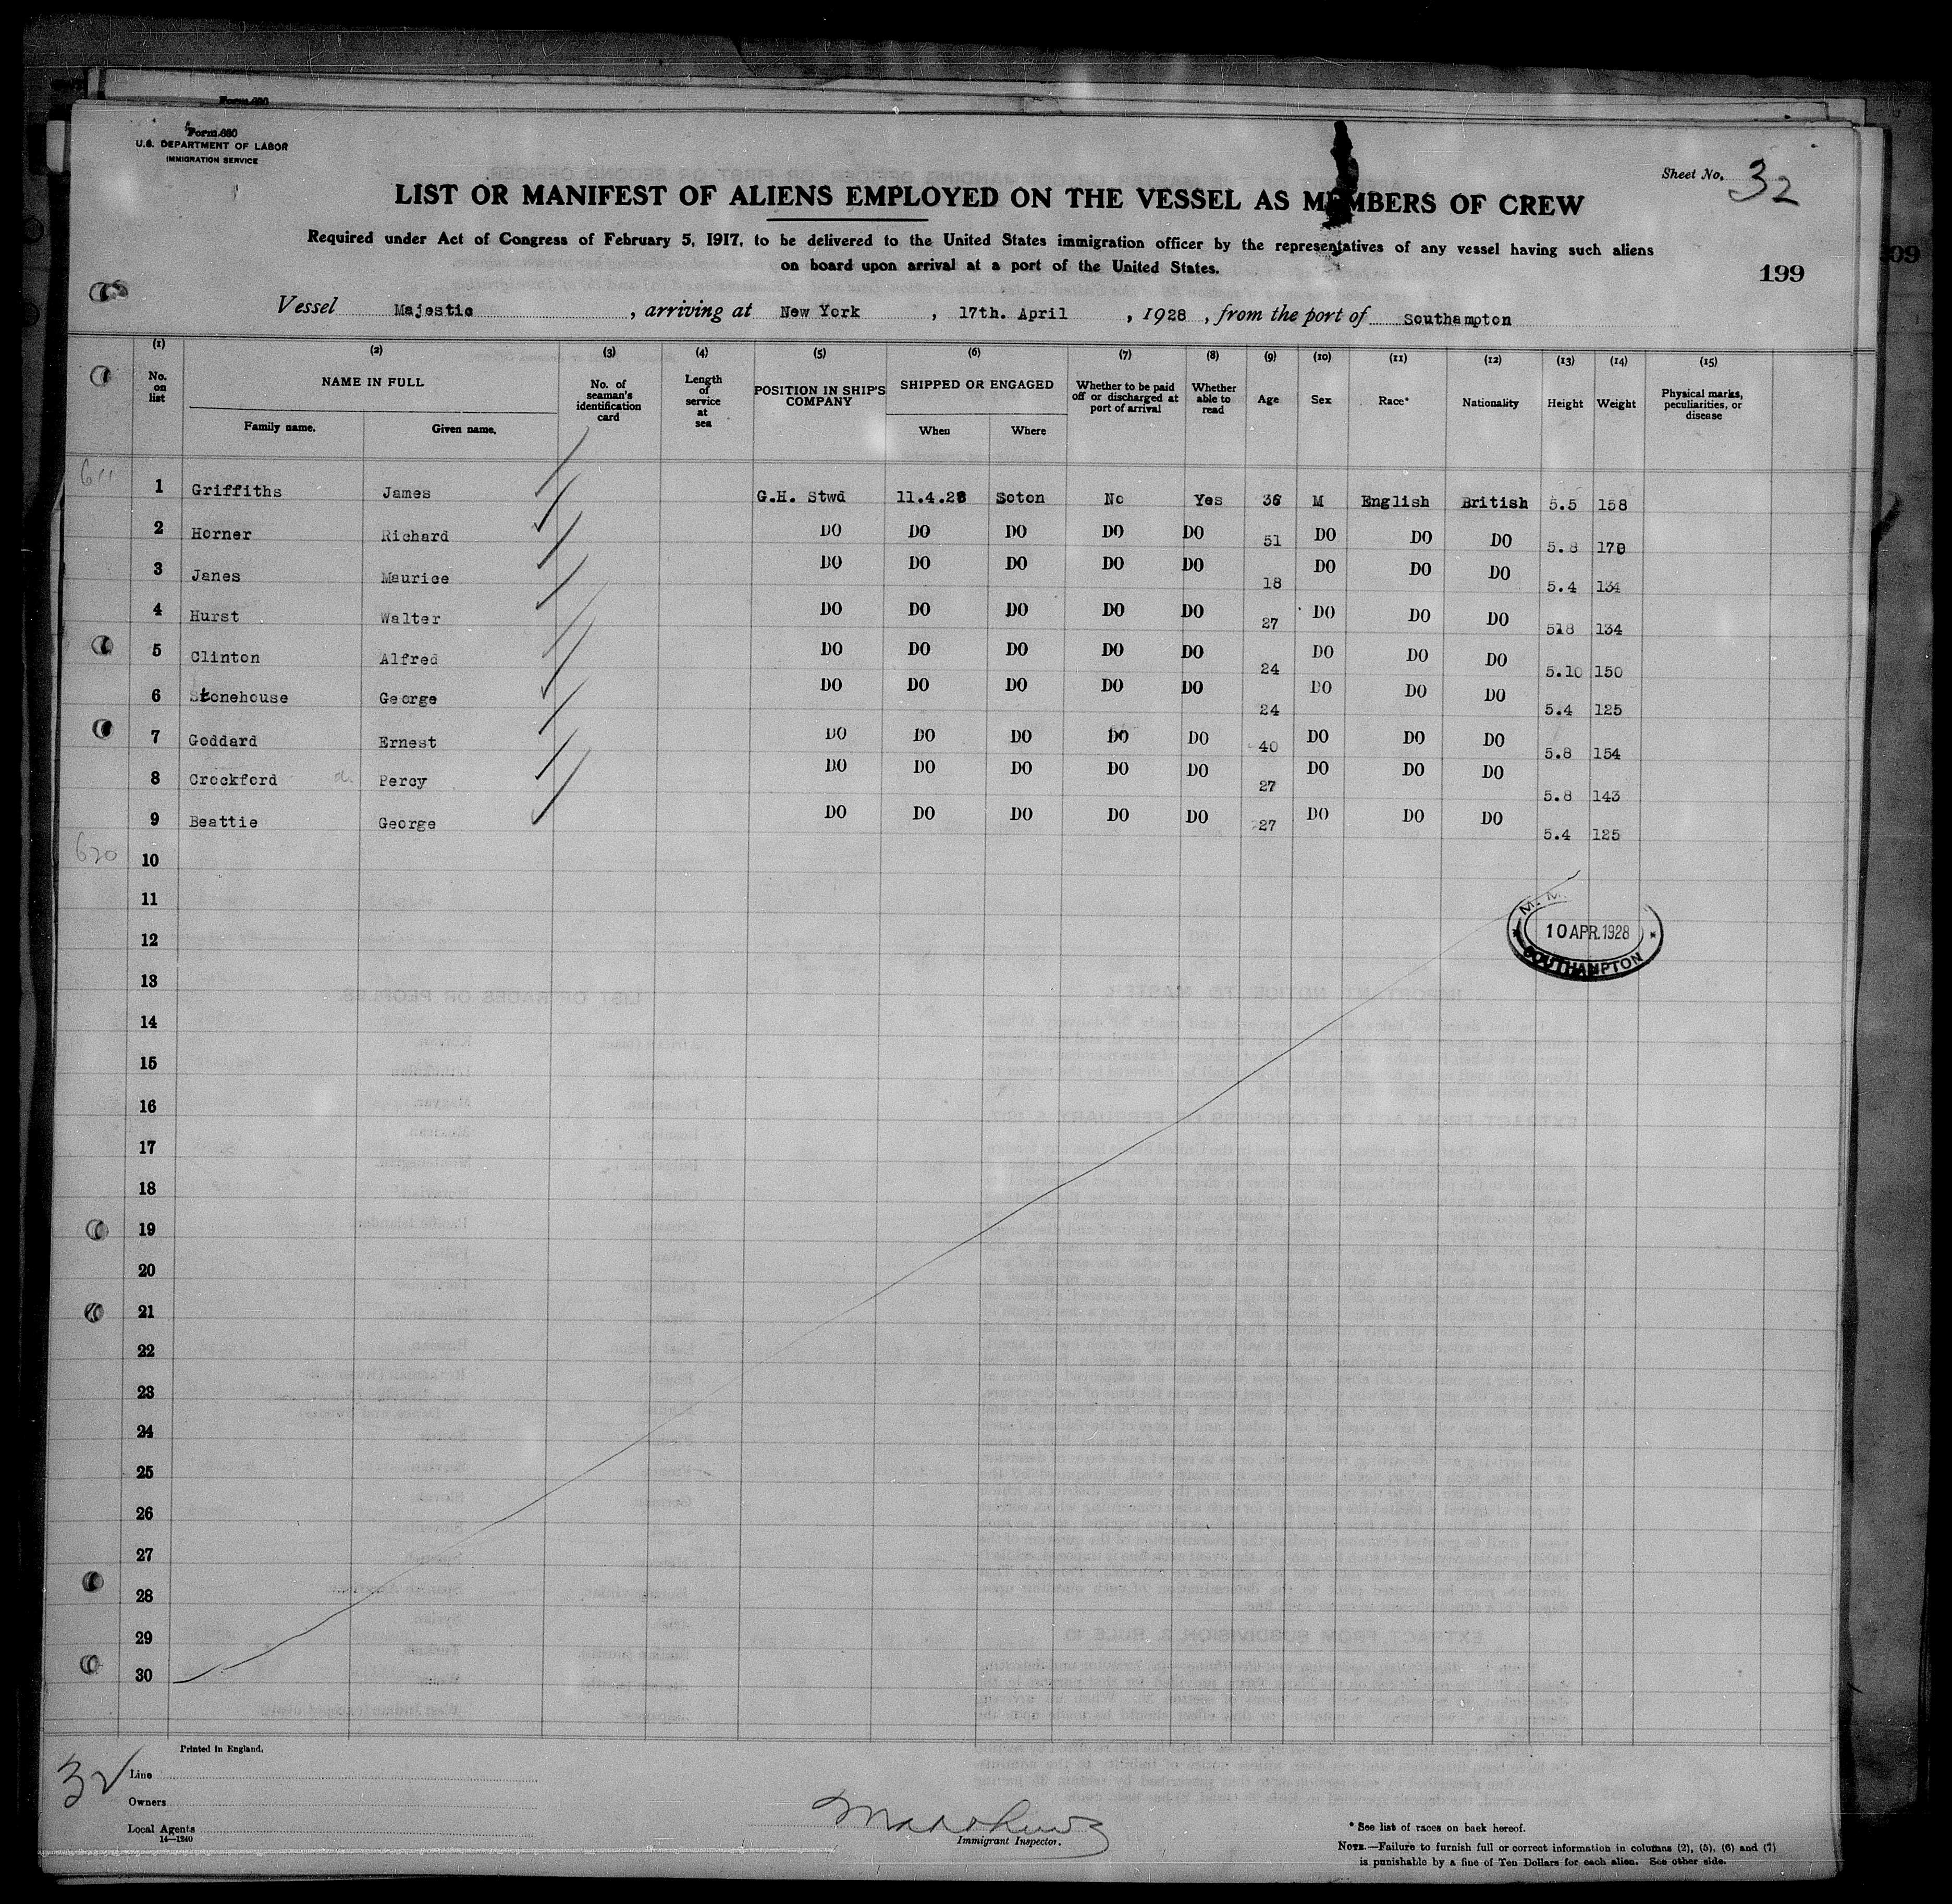 Form 680
U.S. DEPARTMENT OF LABOR
IMMIGRATION SERVICE
Sheet No. 32
LIST OR MANIFEST OF ALIENS EMPLOYED ON THE VESSEL AS MEMBERS OF CREW
Required under Act of Congress of February 5, 1917, to be delivered to the United States immigration officer by the representatives of any vessel having such aliens
on board upon arrival at a port of the United States.
199
Vessel Majestic, arriving at New York, 17th. April, 1928, from the port of Southampton
(1) (2) (3) (4) (5) (6) (7) (8) (9) (10) (11) (12) (13) (14) (15)
No. on list NAME IN FULL Family name. Given name. No. of seaman's identification card Length of service at sea POSITION IN SHIP'S COMPANY SHIPPED OR ENGAGED When Where Whether to be paid off or discharged at port of arrival Whether able to read Age Sex Race* Nationality Height Weight Physical marks, peculiarities, or disease
611
1 Griffiths James G.H. Stwd 11.4.28 Soton No Yes 36 M English British 5.5 158
2 Horner Richard DO DO DO DO DO 51 DO DO DO 5.8 170
3 Janes Maurice DO DO DO DO DO 18 DO DO DO 5.4 134
4 Hurst Walter DO DO DO DO DO 27 DO DO DO 518 134
5 Clinton Alfred DO DO DO DO DO 24 DO DO DO 5.10 150
6 Stonehouse George DO DO DO DO DO 24 DO DO DO 5.4 125
7 Goddard Ernest DO DO DO DO DO 40 DO DO DO 5.8 154
8 Crockford d. Percy DO DO DO DO DO 27 DO DO DO 5.8 143
9 Beattie George DO DO DO DO DO 27 DO DO DO 5.4 125
620
10
11
10 APR. 1928
SOUTHAMPTON
12
13
14
15
16
17
18
19
20
21
22
23
24
25
26
27
28
29
30
Printed in England.
32
Line
Owners
Local Agents
14—1240
Immigrant Inspector.
* See list of races on back hereof.
NOTE.—Failure to furnish full or correct information in columns (2), (5), (6) and (7)
is punishable by a fine of Ten Dollars for each alien. See other side.